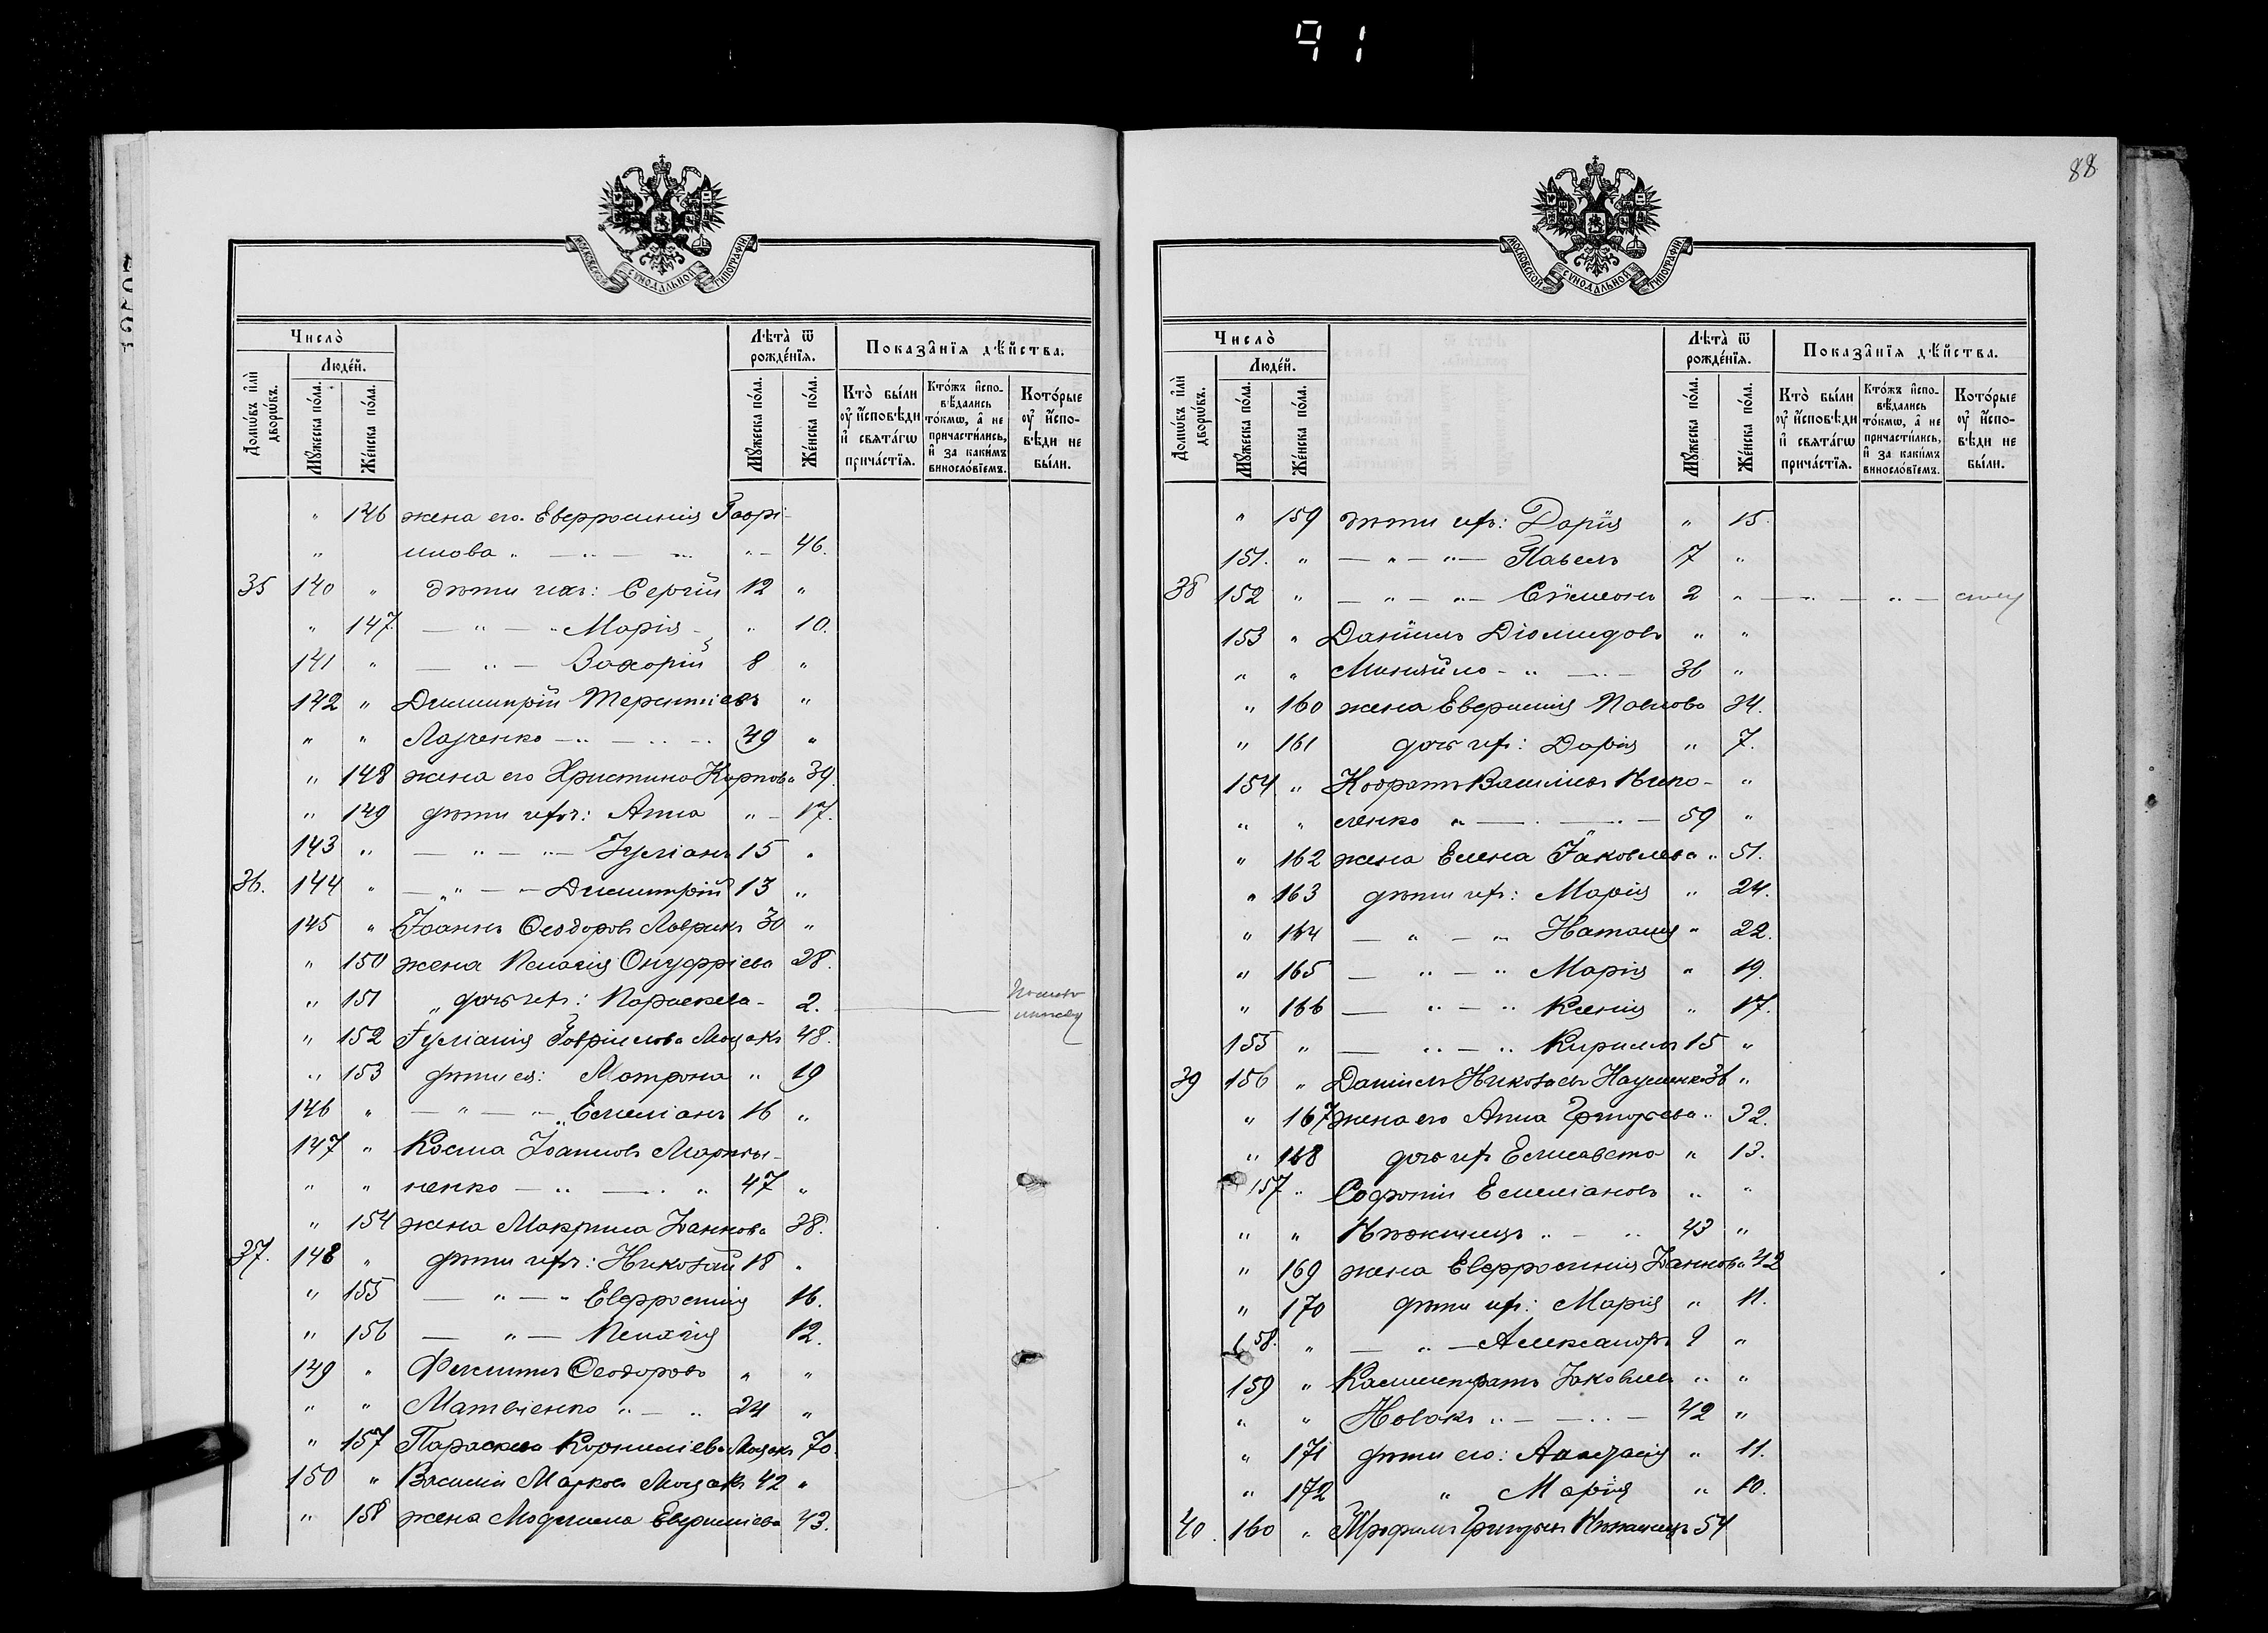 91
88
МОСКОВСКОЙ СѴНОДАЛЬНОЙ ТИПОГРАФІИ
Число̀
Людéй.
Домѡ́въ и҆лѝ дворѡ́въ.
Мꙋ́жеска по́ла.
Же́нска по́ла.
Лѣта̀ ѿ рожде́нїѧ.
Мꙋ́жеска по́ла.
Же́нска по́ла.
Показа̂нїѧ дѣ́йства.
Кто̀ бы́ли оу҆ и҆́сповѣди и҆ свѧта́гѡ прича́стїѧ.
Кто́жъ и҆спо- вѣ́дались то́кмѡ, а҆ не причасти́лись, и҆ за каки́мъ винословїемъ.
Кото́рые оу҆ и҆́спо- вѣди не бы́ли.
" 146 жена его Евфросинія Гаврі-
" илова " — " — " " — 46.
35 140 " дѣти ихъ: Сергій 12 "
" 147. — " — " Марія " 10.
141 " — " — Захарій 8 "
142 " Димитрій Терентіевъ "
" " — " — " — 49 "
" 148 жена его Христина Карпова 39.
" 149 дѣти ихъ: Анна " — 17.
143 " — " — " — Іуліанъ 15 "
36. 144 " — " — " — Димитрій 13 "
145 " Іоаннъ Ѳеодоровъ Лаврикъ 30 "
" 150 жена Пелагія Онуфріева 28.
" 151 " дочь ихъ: Параскева — 2.
" 152 Іуліанія Гавріилова 48.
" 153 дѣти ея: Матрона " 19
146 " — " — " — Емеліанъ 16 "
147 " Косма Іоанновъ Марты-
" " ненко — " — " " 47 "
" 154 жена Макрина Іоаннова 38.
37. 148 " дѣти ихъ: Николай 18 "
" 155 — " — " Евфросинія 16.
" 156 — " — Пелагія 12.
149 " Филиппъ Ѳеодоровъ " "
" " Матвіенко " — " 24 "
" 157 Параскева Корниліева 70.
150 " Василій Марковъ 42 "
" 158 жена 43.
МОСКОВСКОЙ СѴНОДАЛЬНОЙ ТИПОГРАФІИ
Число̀
Людéй.
Домѡ́въ и҆лѝ дворѡ́въ.
Мꙋ́жеска по́ла.
Же́нска по́ла.
Лѣта̀ ѿ рожде́нїѧ.
Мꙋ́жеска по́ла.
Же́нска по́ла.
Показа̂нїѧ дѣ́йства.
Кто̀ бы́ли оу҆ и҆́сповѣди и҆ свѧта́гѡ прича́стїѧ.
Кто́жъ и҆спо- вѣ́дались то́кмѡ, а҆ не причасти́лись, и҆ за каки́мъ винословїемъ.
Кото́рые оу҆ и҆́спо- вѣди не бы́ли.
" 159 дѣти ихъ: Дарія " 15.
151. " — " — " — Павелъ 7 "
38 152 " — " — " — Сѵмеонъ 2 " — " — " —
153 " Даніилъ Діомидовъ " "
" " Миняйло — " — " — 36 "
" 160 жена Павлова 34.
" 161 дочь ихъ: Дарія " 7.
154 " Кодратъ "
" " ленко " — . — . — 59 "
" 162 жена Елена Іаковлева " 51.
" 163 дѣти ихъ: Марія " 24.
" 164 — " — " Наталія " 22.
" 165 — " — " Марія " 19.
" 166 — " — " Ксенія " 17.
155 " — " — " Кириллъ 15 "
39 156 " Даніилъ Николаевъ Науменко 36 "
" 167 жена его Анна Григорьева " 32.
" 168 дочь ихъ Елисавета " 13.
157 " Софроній Емеліановъ " "
" " " — " 43 "
" 169 жена Евфросинія Іоаннова 42
" 170 дѣти ихъ: Марія " 11.
158. " — " — Александръ 9 "
159 " Каллистратъ Іаковлевъ " "
" " Новакъ " — — " — 42 "
" 171 дѣти его: Анастасія " 11.
" 172 " Марія " 10.
40. 160 " Трофимъ Григорьевъ 54